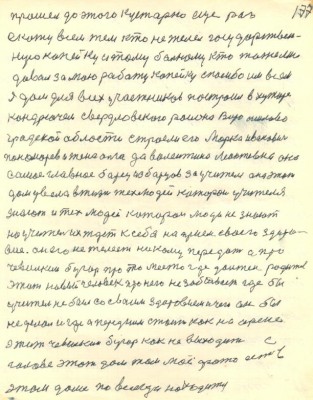 177
прошел до этого Кустарно еще раз
скажу всем тем кто не жалел государствен-
ную копейку и тому больному кто тяжело
давал за мою работу копейку спасибо им всем
Я дом для всех участников построил в хуторе
Кондрючий свердловского района Ворошилово
градской области строил его Морка ивакович
пономорев и жена его да валентина Леонтевна оно
самое главное борец оборцов за учителя она этот
дом ввела в жизнь тех людей которои учителя
знают и тех людей которои люди не знают
но учителя ждет к себя на прием своего здоро-
вие. он его не жалеет никому передат а про
чевилкин бугор про то место где должен родится
этот новый человек про него не забывает где бы
учитель не был со своим здоровием а чего бы он
не делал и где а передним стоит как на сцене
этот чевилкин бугор как не выходит с
головы этот дом там моё фото есть в
этом доме по всегда нахожу